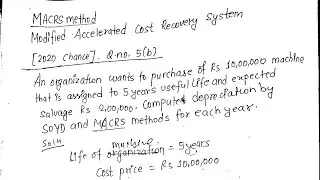 MACRS method
Modified Accelerated Cost Recovery System
[2020 Chance]. Q.no. 5(b)
An organization wants to purchase of Rs 10,00,000 machine
that is assigned to 5 years useful life and expected
salvage Rs 2,00,000. Compute depreciation by
SOYD and MACRS methods for each year.
Soln.
Life of machine = 5 years
Cost price = Rs 10,00,000